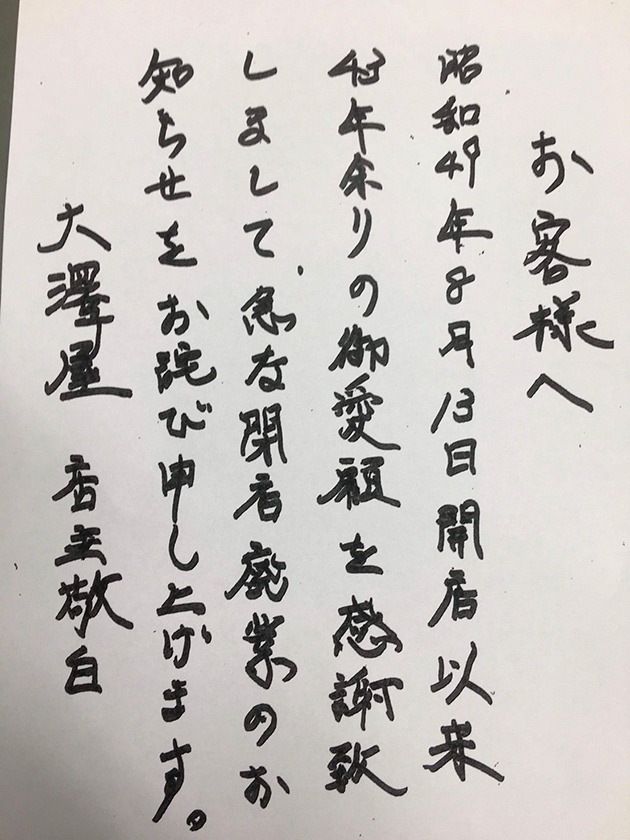 お客様へ
昭和49年8月13日開店以来
43年余りの御愛顧を感謝致
しまして、急な閉店廃業のお
知らせをお詫び申し上げます。
大澤屋 店主敬白